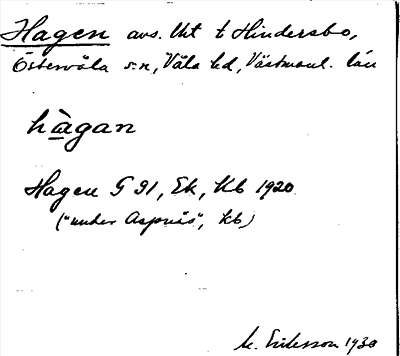 Hagen avs. Vht t Hindersbo,
Östervåla sn, Våla hd, Västmanl. län
hàgan
Hagen G 91, Ek, Kb 1920
("under Aspnäs", kb)
M. Eriksson 1930